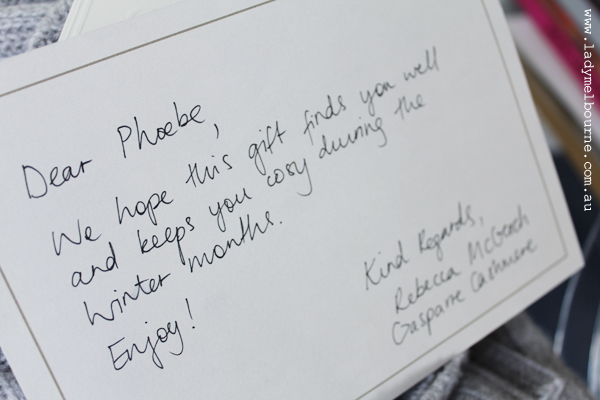 Dear Phoebe,
We hope this gift finds you well
and keeps you cosy during the
Winter months.
Enjoy!
Kind Regards,
Rebecca McGeoch
Gasparre Cashmere
www.ladymelbourne.com.au